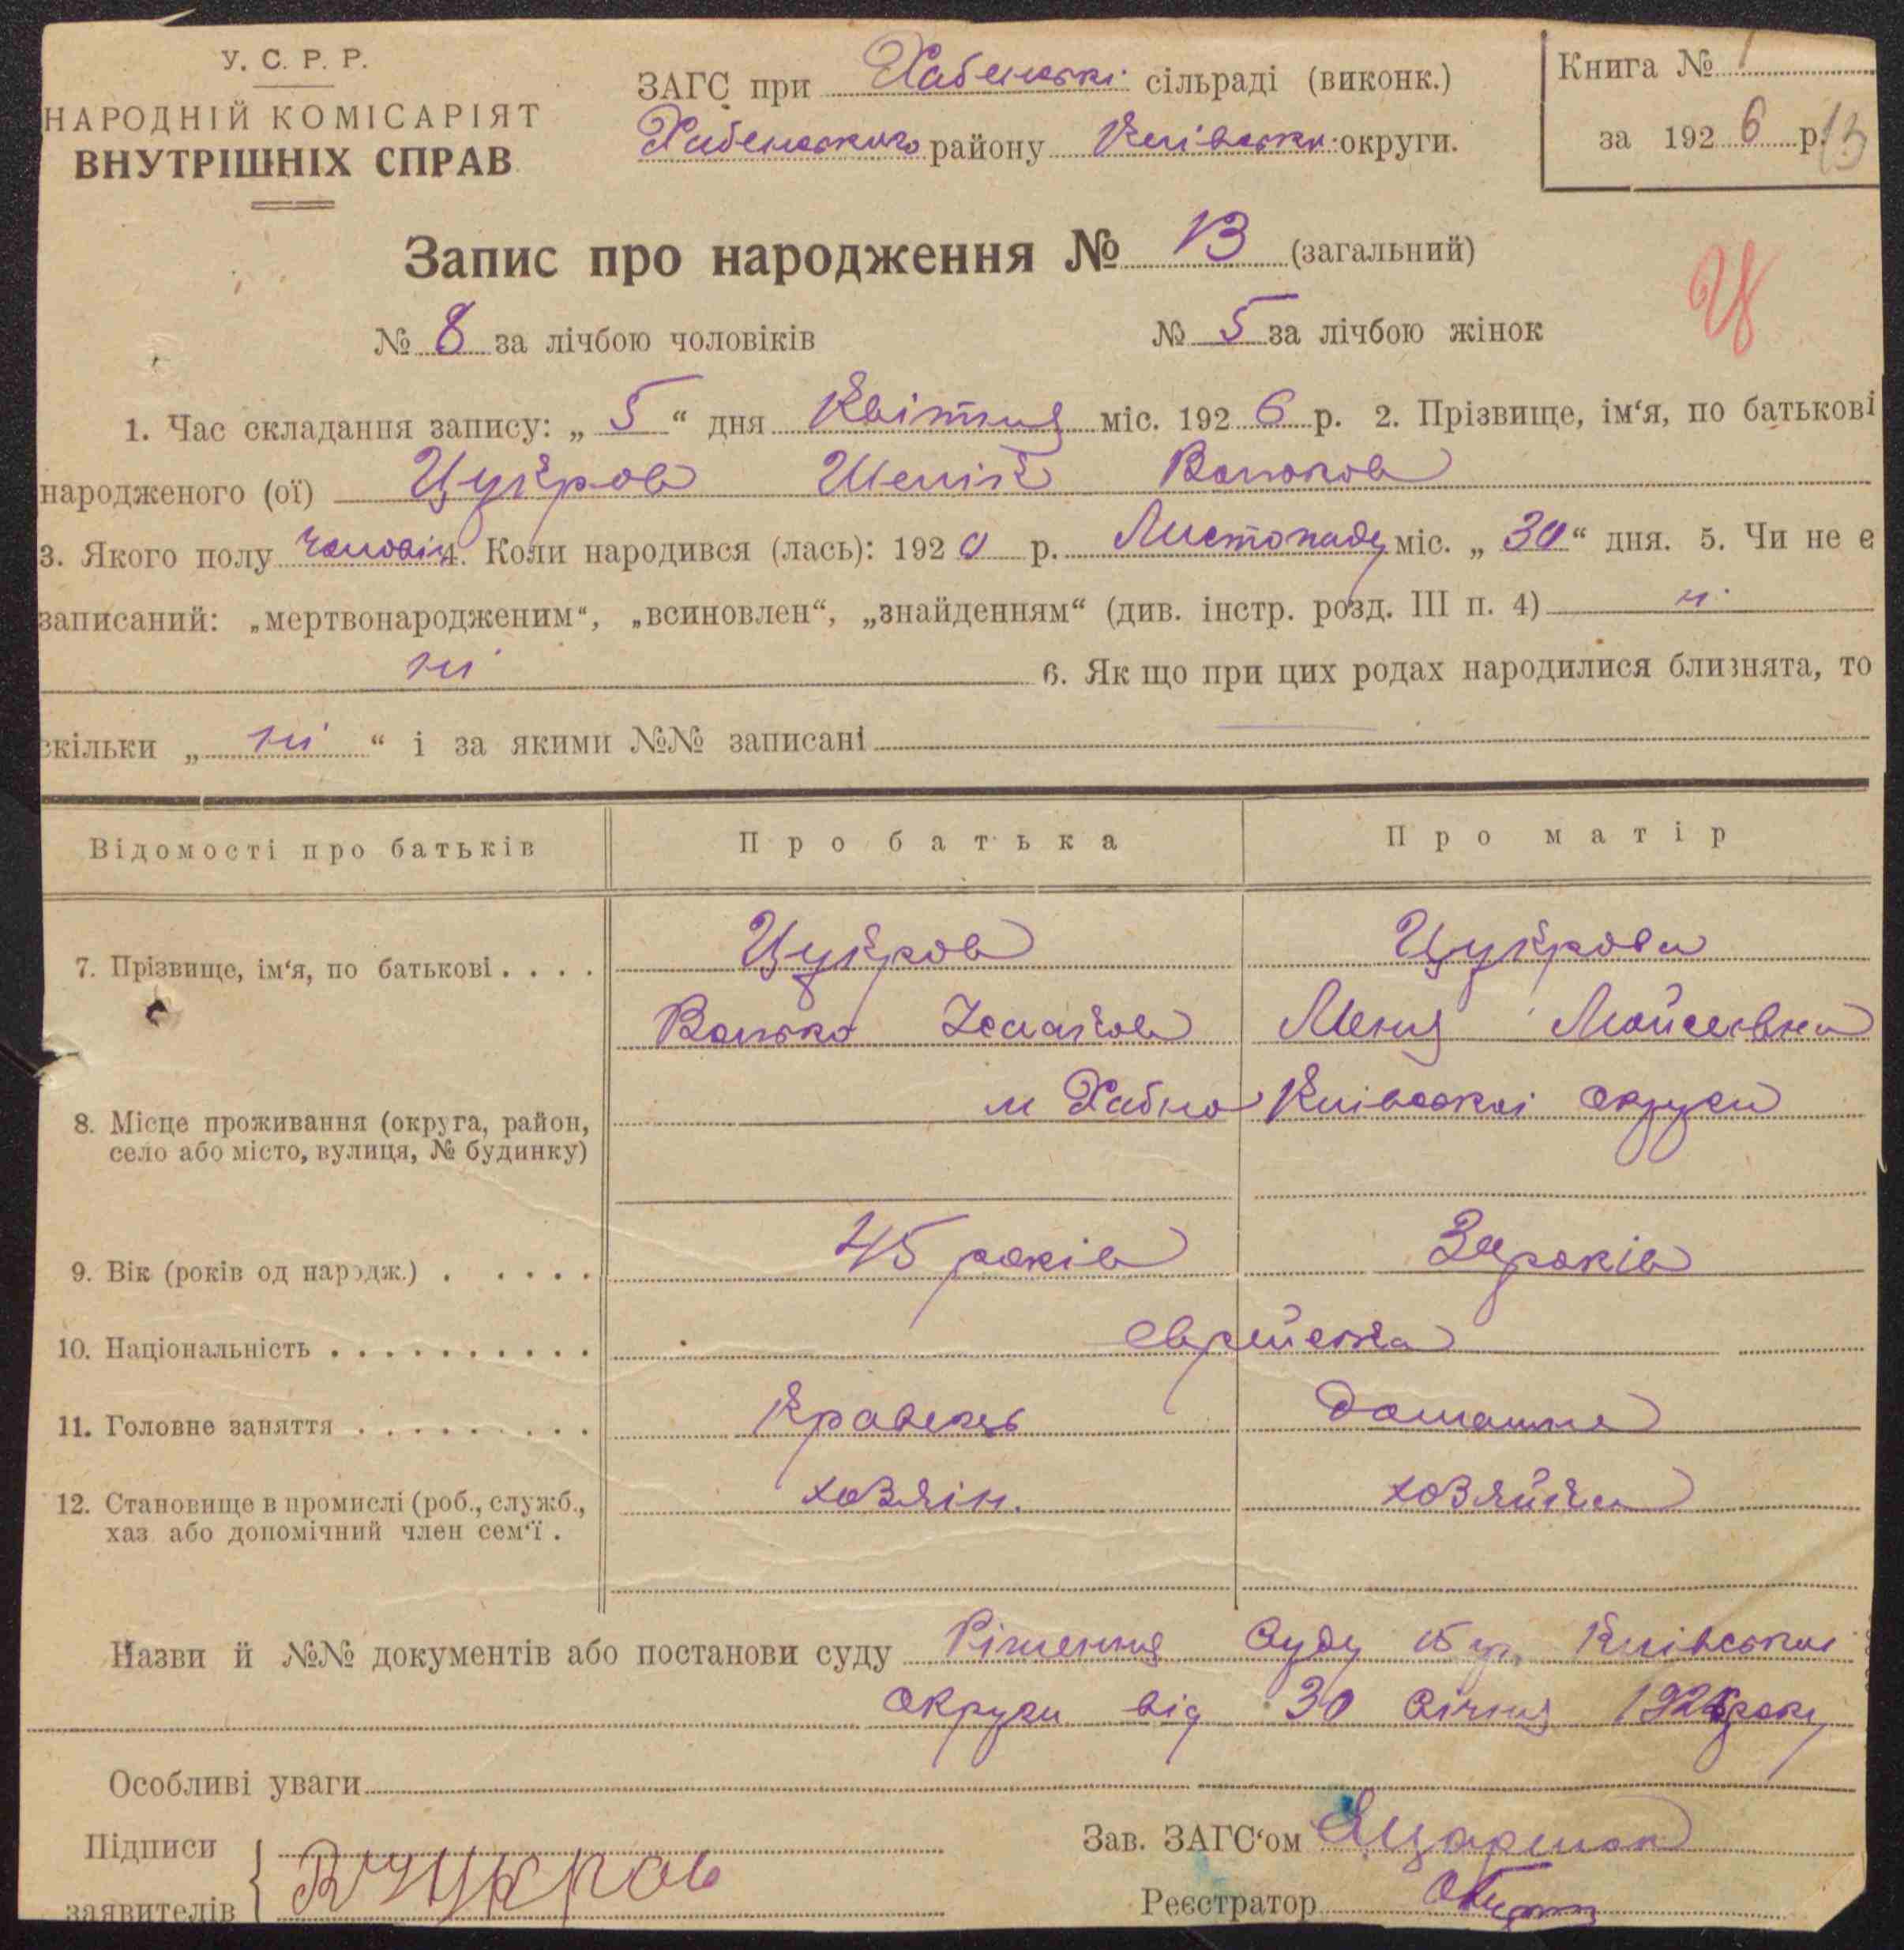 У. С. Р. Р.
НАРОДНІЙ КОМІСАРІЯТ
ВНУТРІШНІХ СПРАВ
ЗАГС при Хабенські сільраді (виконк.)
Хабенського району Київськи округи.
Книга № 1
за 192 6 р. 13
Запис про народження № 13 (загальний)
№ 8 за лічбою чоловіків № 5 за лічбою жінок
1. Час складання запису: „ 5 “ дня Квітня міс. 192 6 р. 2. Прізвище, ім‘я, по батькові
народженого (ої) Цукров Шемік Вольков
3. Якого полу чоловік 4. Коли народився (лась): 192 0 р. Листопаду міс. „ 30 “ дня. 5. Чи не є
записаний: „мертвонародженим“, „всиновлен“, „знайденням“ (див. інстр. розд. III п. 4) ні
ні 6. Як що при цих родах народилися близнята, то
скільки „ ні “ і за якими №№ записані
Відомості про батьків Про батька Про матір
7. Прізвище, ім‘я, по батькові . . . . Цукров Цукрова
Волько Меня Мойсеєвна
8. Місце проживання (округа, район, м Хабно Київської округи
село або місто, вулиця, № будинку)
9. Вік (років од народж.) . . . . . 45 років років
10. Національність . . . . . . . . . . єврейська
11. Головне заняття . . . . . . . . . Кравець домашне
12. Становище в промислі (роб., служб., хозяін. хозяйка
хаз або допомічний член сем‘ї .
Назви й №№ документів або постанови суду Рішення Суду 15 Київської
округи від 30 Січня 1926 року
Особливі уваги
Підписи
заявителів Цукров
Зав. ЗАГС‘ом
Реєстратор